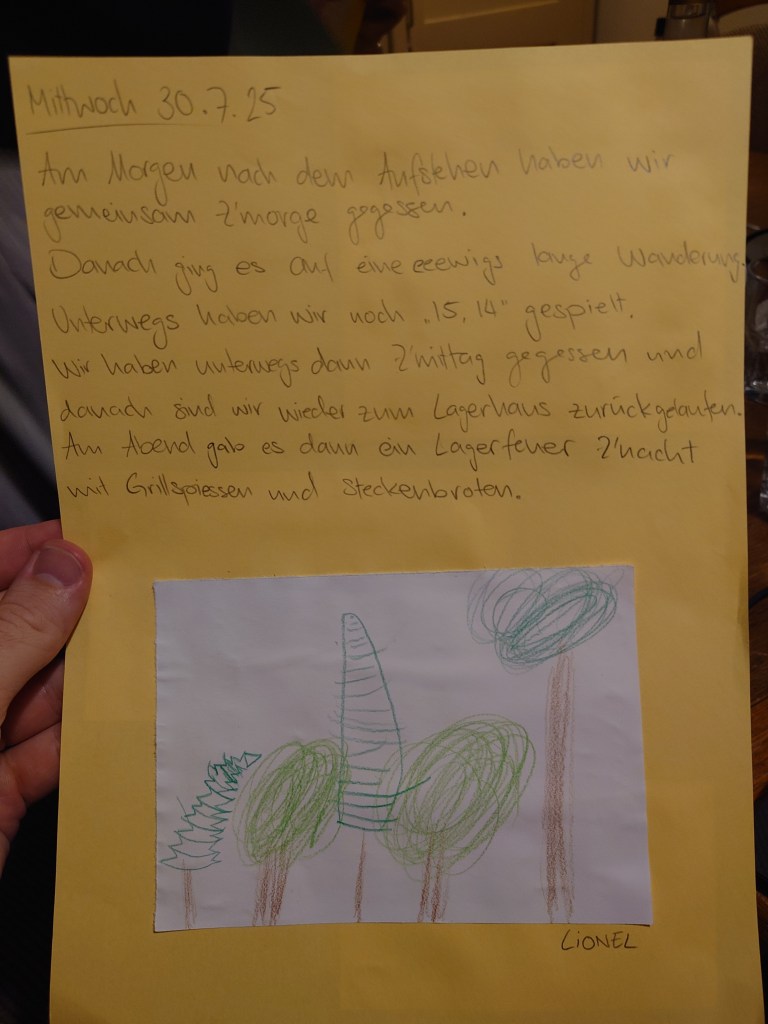 Mittwoch 30.7.25
Am Morgen nach dem Aufstehen haben wir
gemeinsam Z'morge gegessen.
Danach ging es auf eine eeewigs lange Wanderung.
Unterwegs haben wir noch „15, 14" gespielt.
Wir haben unterwegs dann Z'mittag gegessen und
danach sind wir wieder zum Lagerhaus zurückgelaufen.
Am Abend gab es dann ein Lagerfeuer Z'nacht
mit Grillspiessen und Steckenbroten.
LiONEL